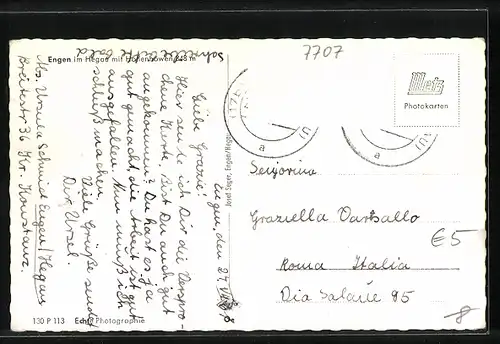 Engen im Hegau mit Hohenhöwen 848 m
Schreibe bitte bald
7707
Metz
Photokarten
Engen, den 27.
Liebe Grazie!
Hier sende ich Dir die verspro-
chene Karte. Bist Du auch gut
angekommen? Du hast es ja
gut gemacht, die Arbeit ist gut
ausgefallen. Nun muß ich
schluß machen.
Viele Grüße sendet
Dir Ursel.
Abs. Ursula Schmidt Engen/Hegau
Breitestr. 36 Kr. Konstanz.
Josef Steger, Engen/Hegau
a
a
Senjorina
Graziella Varballo
€5
Roma Italia
Via Salarie 95
8
130 P 113 Echte Photographie